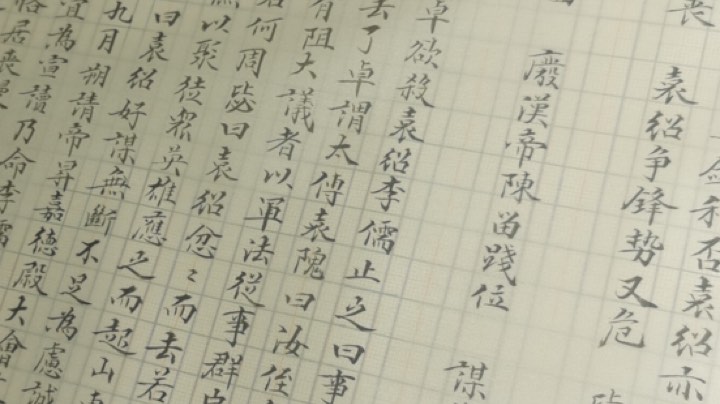 否袁紹亦
丧 袁紹争鋒势又危
廢漢帝陳留踐位 謀
卓欲殺袁紹李儒止之曰事
去了卓謂太傅袁隗曰汝侄
有阻大議者以軍法從事群
何周毖曰袁紹忿〻而去若
以聚徒眾英雄應之而起山
曰袁紹好謀無斷不足為慮誠
九月朔請帝昇嘉德殿大會
宜為宣讀乃命李儒
居喪